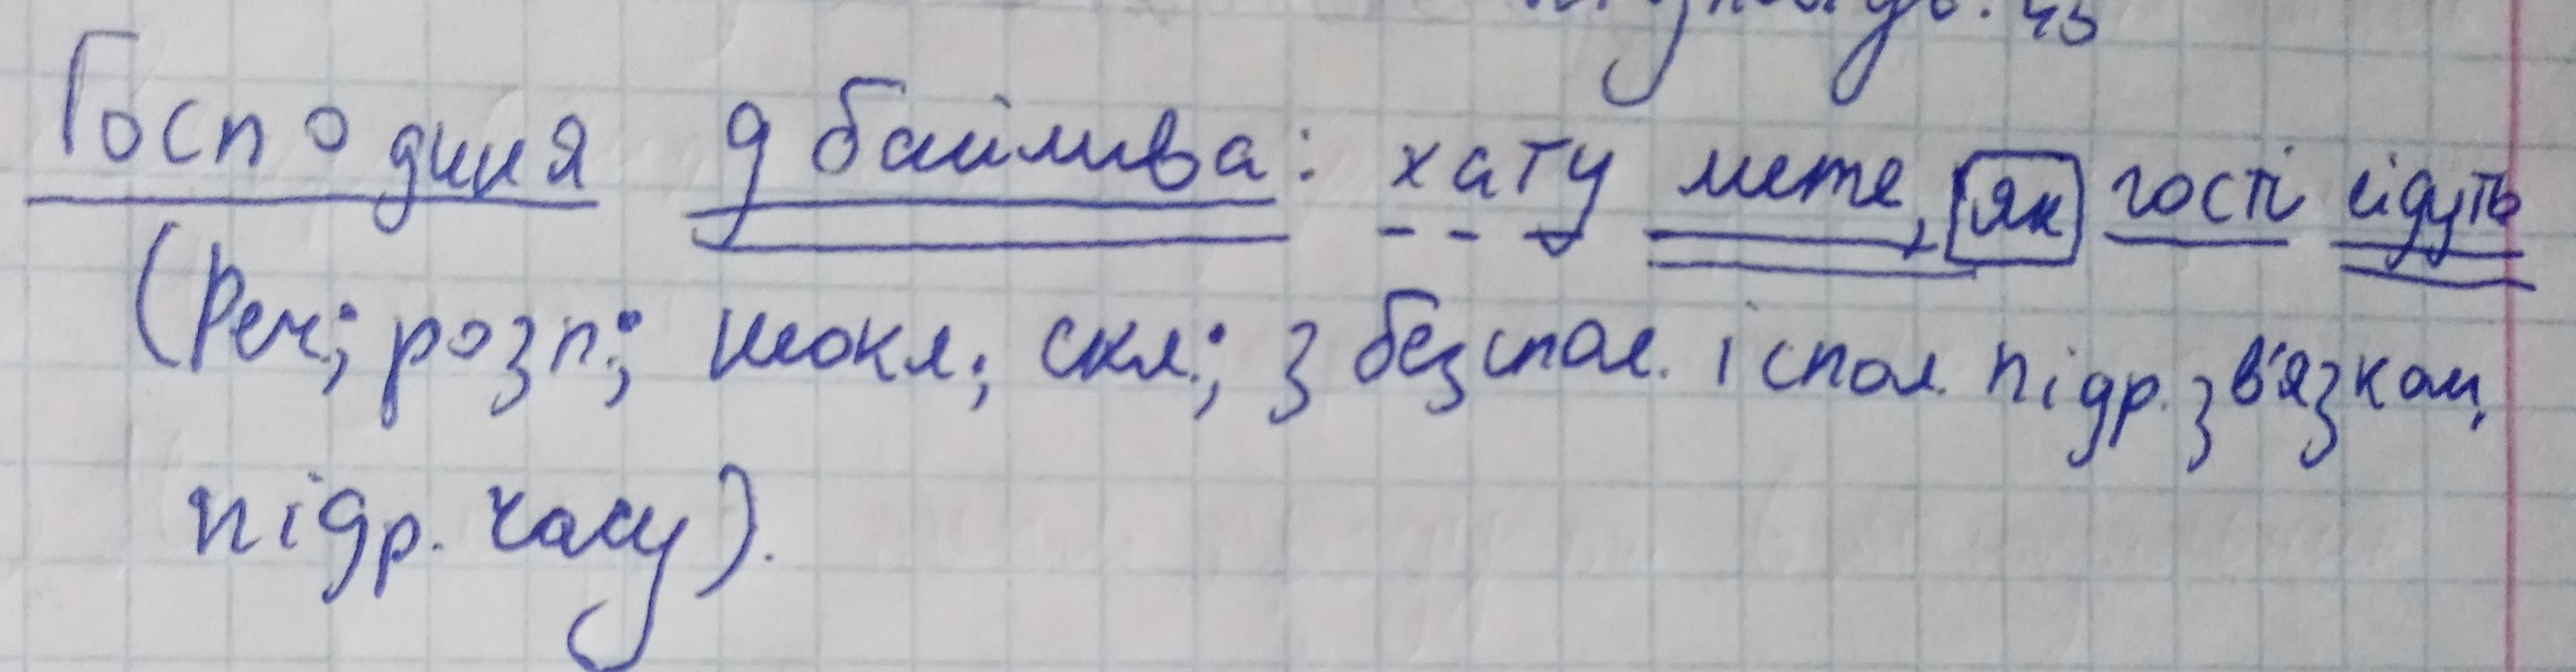 Господиня дбайлива: хату мете, як гості йдуть
(Реч.; розп.; неокл.; скл.; з безспол. і спол. підр. зв'язком,
підр. часу).